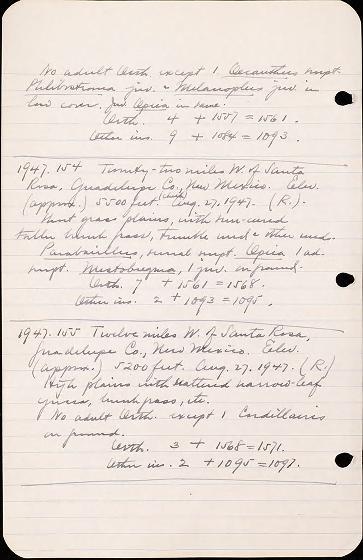 No adult Orth. except 1 Oecanthus nupt.
Philibostroma juv. & Melanoplus juv. in
low cover. Juv. Opeia in same.
Orth. 4 + 1557 = 1561.
Other ins. 9 + 1084 = 1093.
1947.154 Twenty-two miles W. of Santa
Rosa, Guadalupe Co., New Mexico. Elev.
(approx.) 5500 feet. (check) Aug. 27, 1947. (R.)
Short grass plains, with
taller bunch grass, weed & other weed.
nupt. Opeia 1 ad.
nupt. Mestobregma, 1 juv. on ground.
Orth. 7 + 1561 = 1568.
Other ins. 2 + 1093 = 1095.
1947.155 Twelve miles W. of Santa Rosa,
Guadalupe Co., New Mexico. Elev.
(approx.) 5200 feet. Aug. 27, 1947. (R.)
High plains with scattered narrow-leaf
yucca, bunch grass, etc.
No adult Orth. except 1 Cordillacris
on ground.
Orth. 3 + 1568 = 1571.
Other ins. 2 + 1095 = 1097.